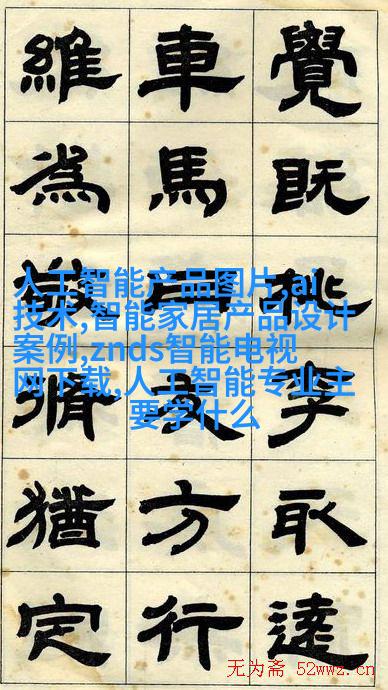 覺既桃李取達
車馬友方行
維為脩猶定
人工智能产品图片,ai
技术,智能家居产品设计
案例,znds智能电视
网下载,人工智能专业主
要学什么
无为斋 52wwz.cn